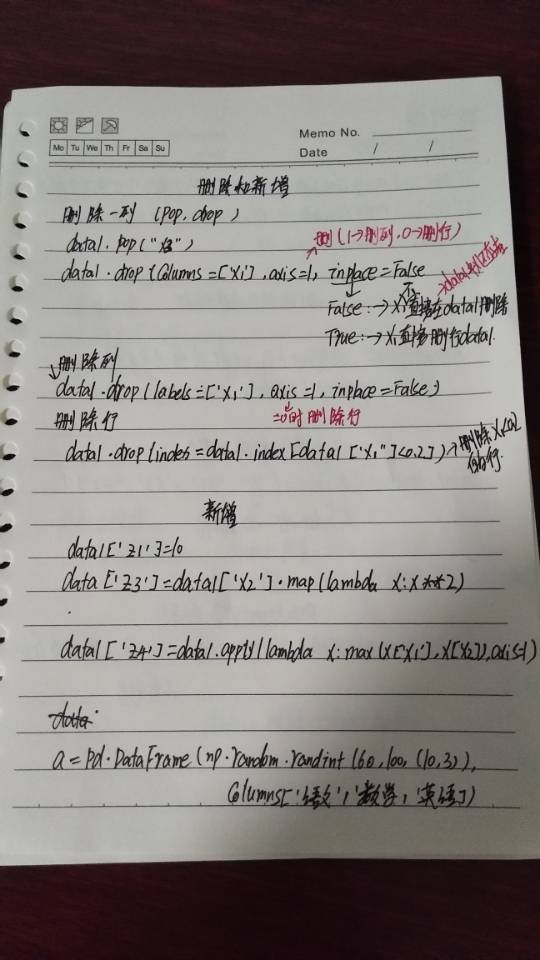 Memo No.
Mo Tu We Th Fr Sa Su
Date / /
删除和新增
删除一列 (pop, drop)
data1.pop("
→删(1→删列,0→删行)
data1.drop(columns=['x1'],axis=1, inplace=False
False:→x1不直接在data1删除
True:→x1直接删行data1.
↓删除列
data1.drop(labels=['x1'],axis=1,inplace=False)
删除行
=0时删除行
data1.drop(index=data1.index[data1['x1"]<0.2])→删除x1<0.2
的行.
新增
data1['z1']=10
data['z3']=data1['x2'].map(lambda x:x**2)
data1['z4']=data1.apply(lambda x:max(x['x1'],x[x2]),axis=1)
data
a=pd.DataFrame(np.random.randint(60,100,(10,3)),
columns['语数','数学,'英语])